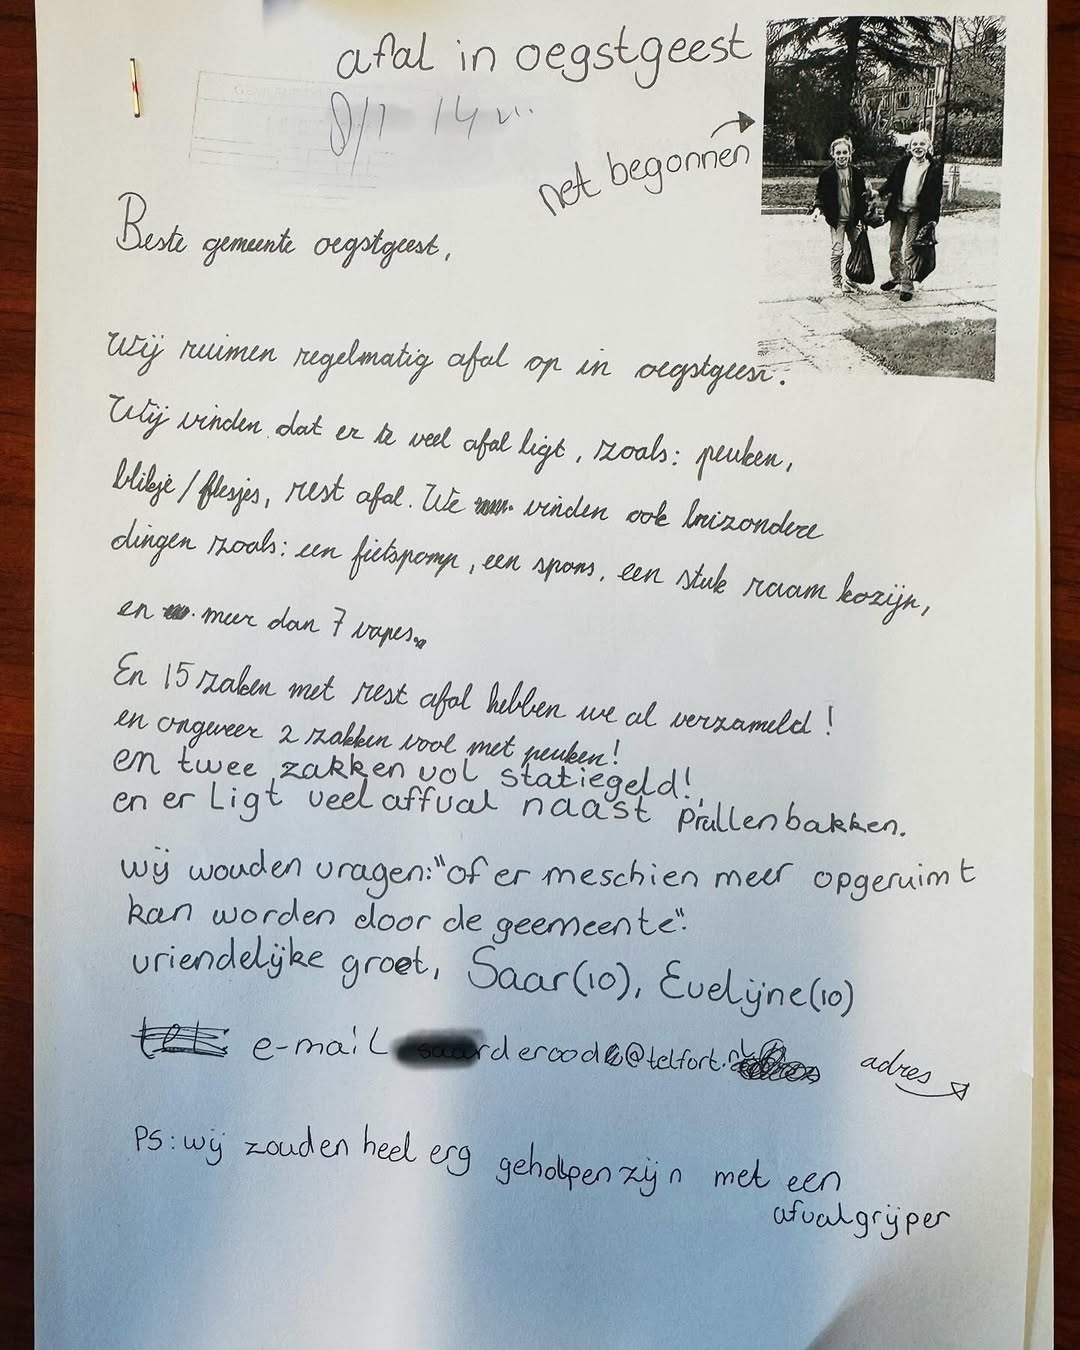 afal in oegstgeest
net begonnen
Beste gemeente oegstgeest,
Wij ruimen regelmatig afal op in oegstgeest.
Wij vinden dat er te veel afal ligt, zoals: peuken,
blikje/flesjes, rest afal. We vinden ook buizondere
dingen zoals: een fietspomp, een spons, een stuk raam kozijn,
en meer dan 7 vapes..
En 15 zaken met rest afal hebben we al verzameld!
en ongeveer 2 zakken vool met peuken!
en twee zakken vol statiegeld!
en er Ligt veel affval naast prullenbakken.
wij wouden vragen:"of er meschien meer opgeruimt
kan worden door de geemeente".
vriendelijke groet, Saar(10), Evelijne(10)
e-mail @telfort.nl
adres
PS: wij zouden heel erg geholpen zijn met een
afvalgrijper